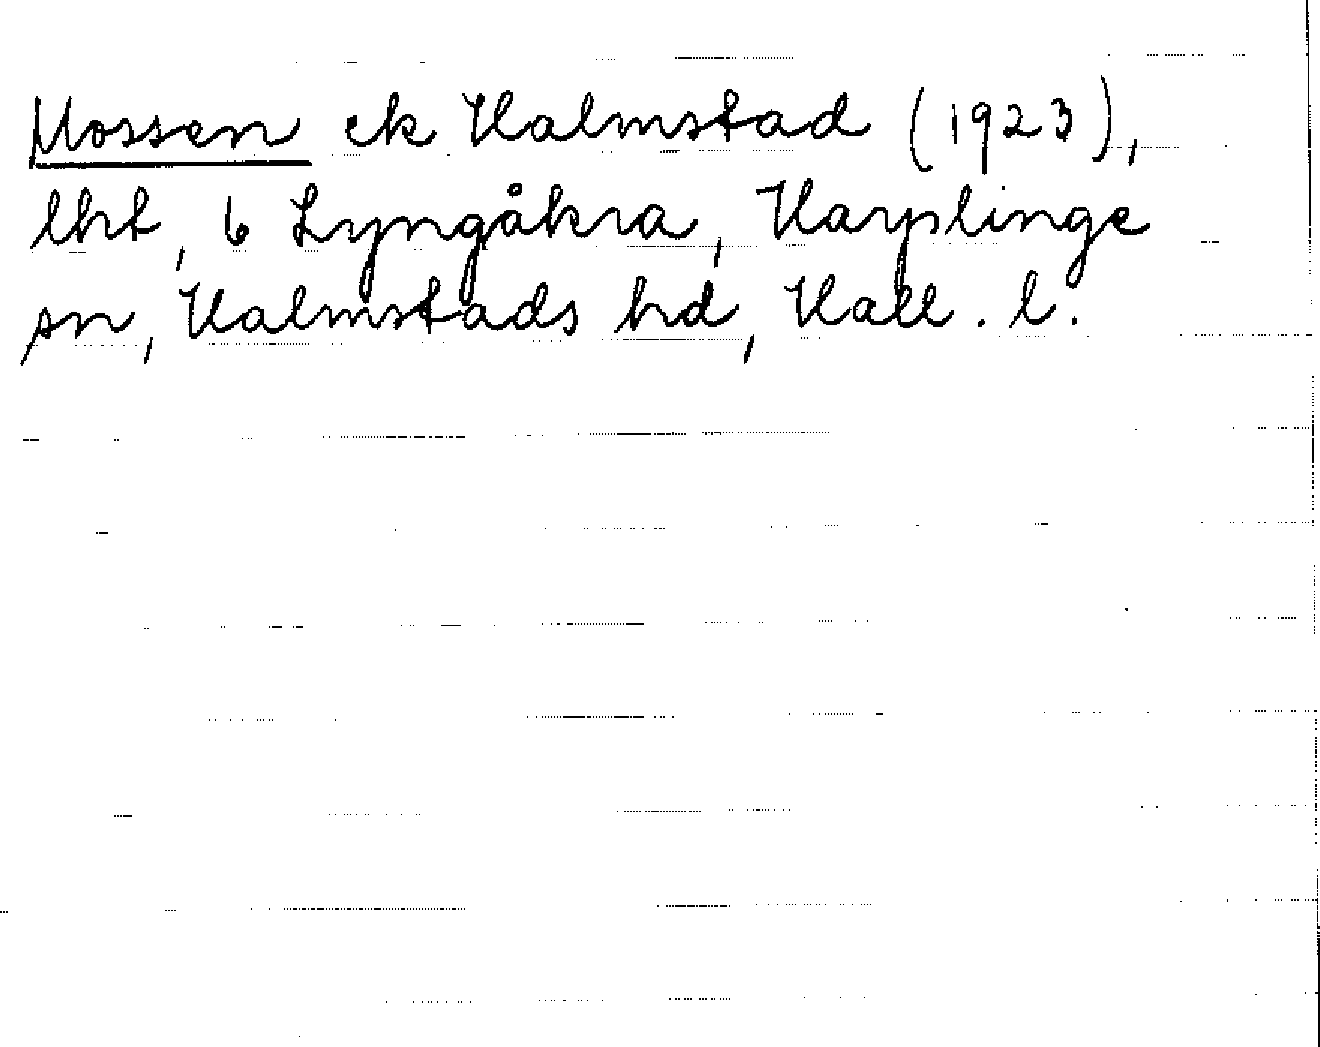 Mossen ek Halmstad (1923),
lht, 6 Lyngåkra, Harplinge
sn, Halmstads hd, Hall. l.